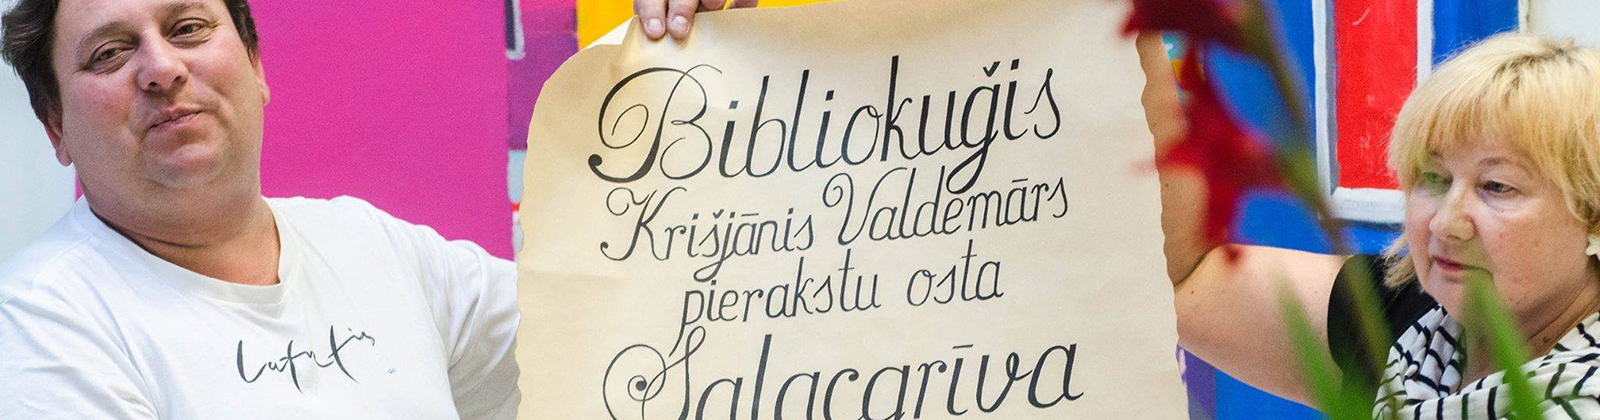 Bibliokuģis
Krišjānis Valdemārs
pierakstu osta
Salacgrīva